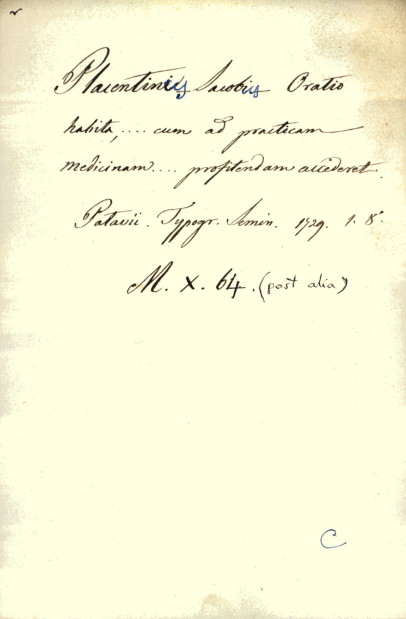 Placentinius Jacobus Oratio
habita, .... cum ad practicam
medicinam .... profitendam accederet.
Patavii. Typogr. Semin. 1729. 1. 8.
M. X. 64. (post alia)
C